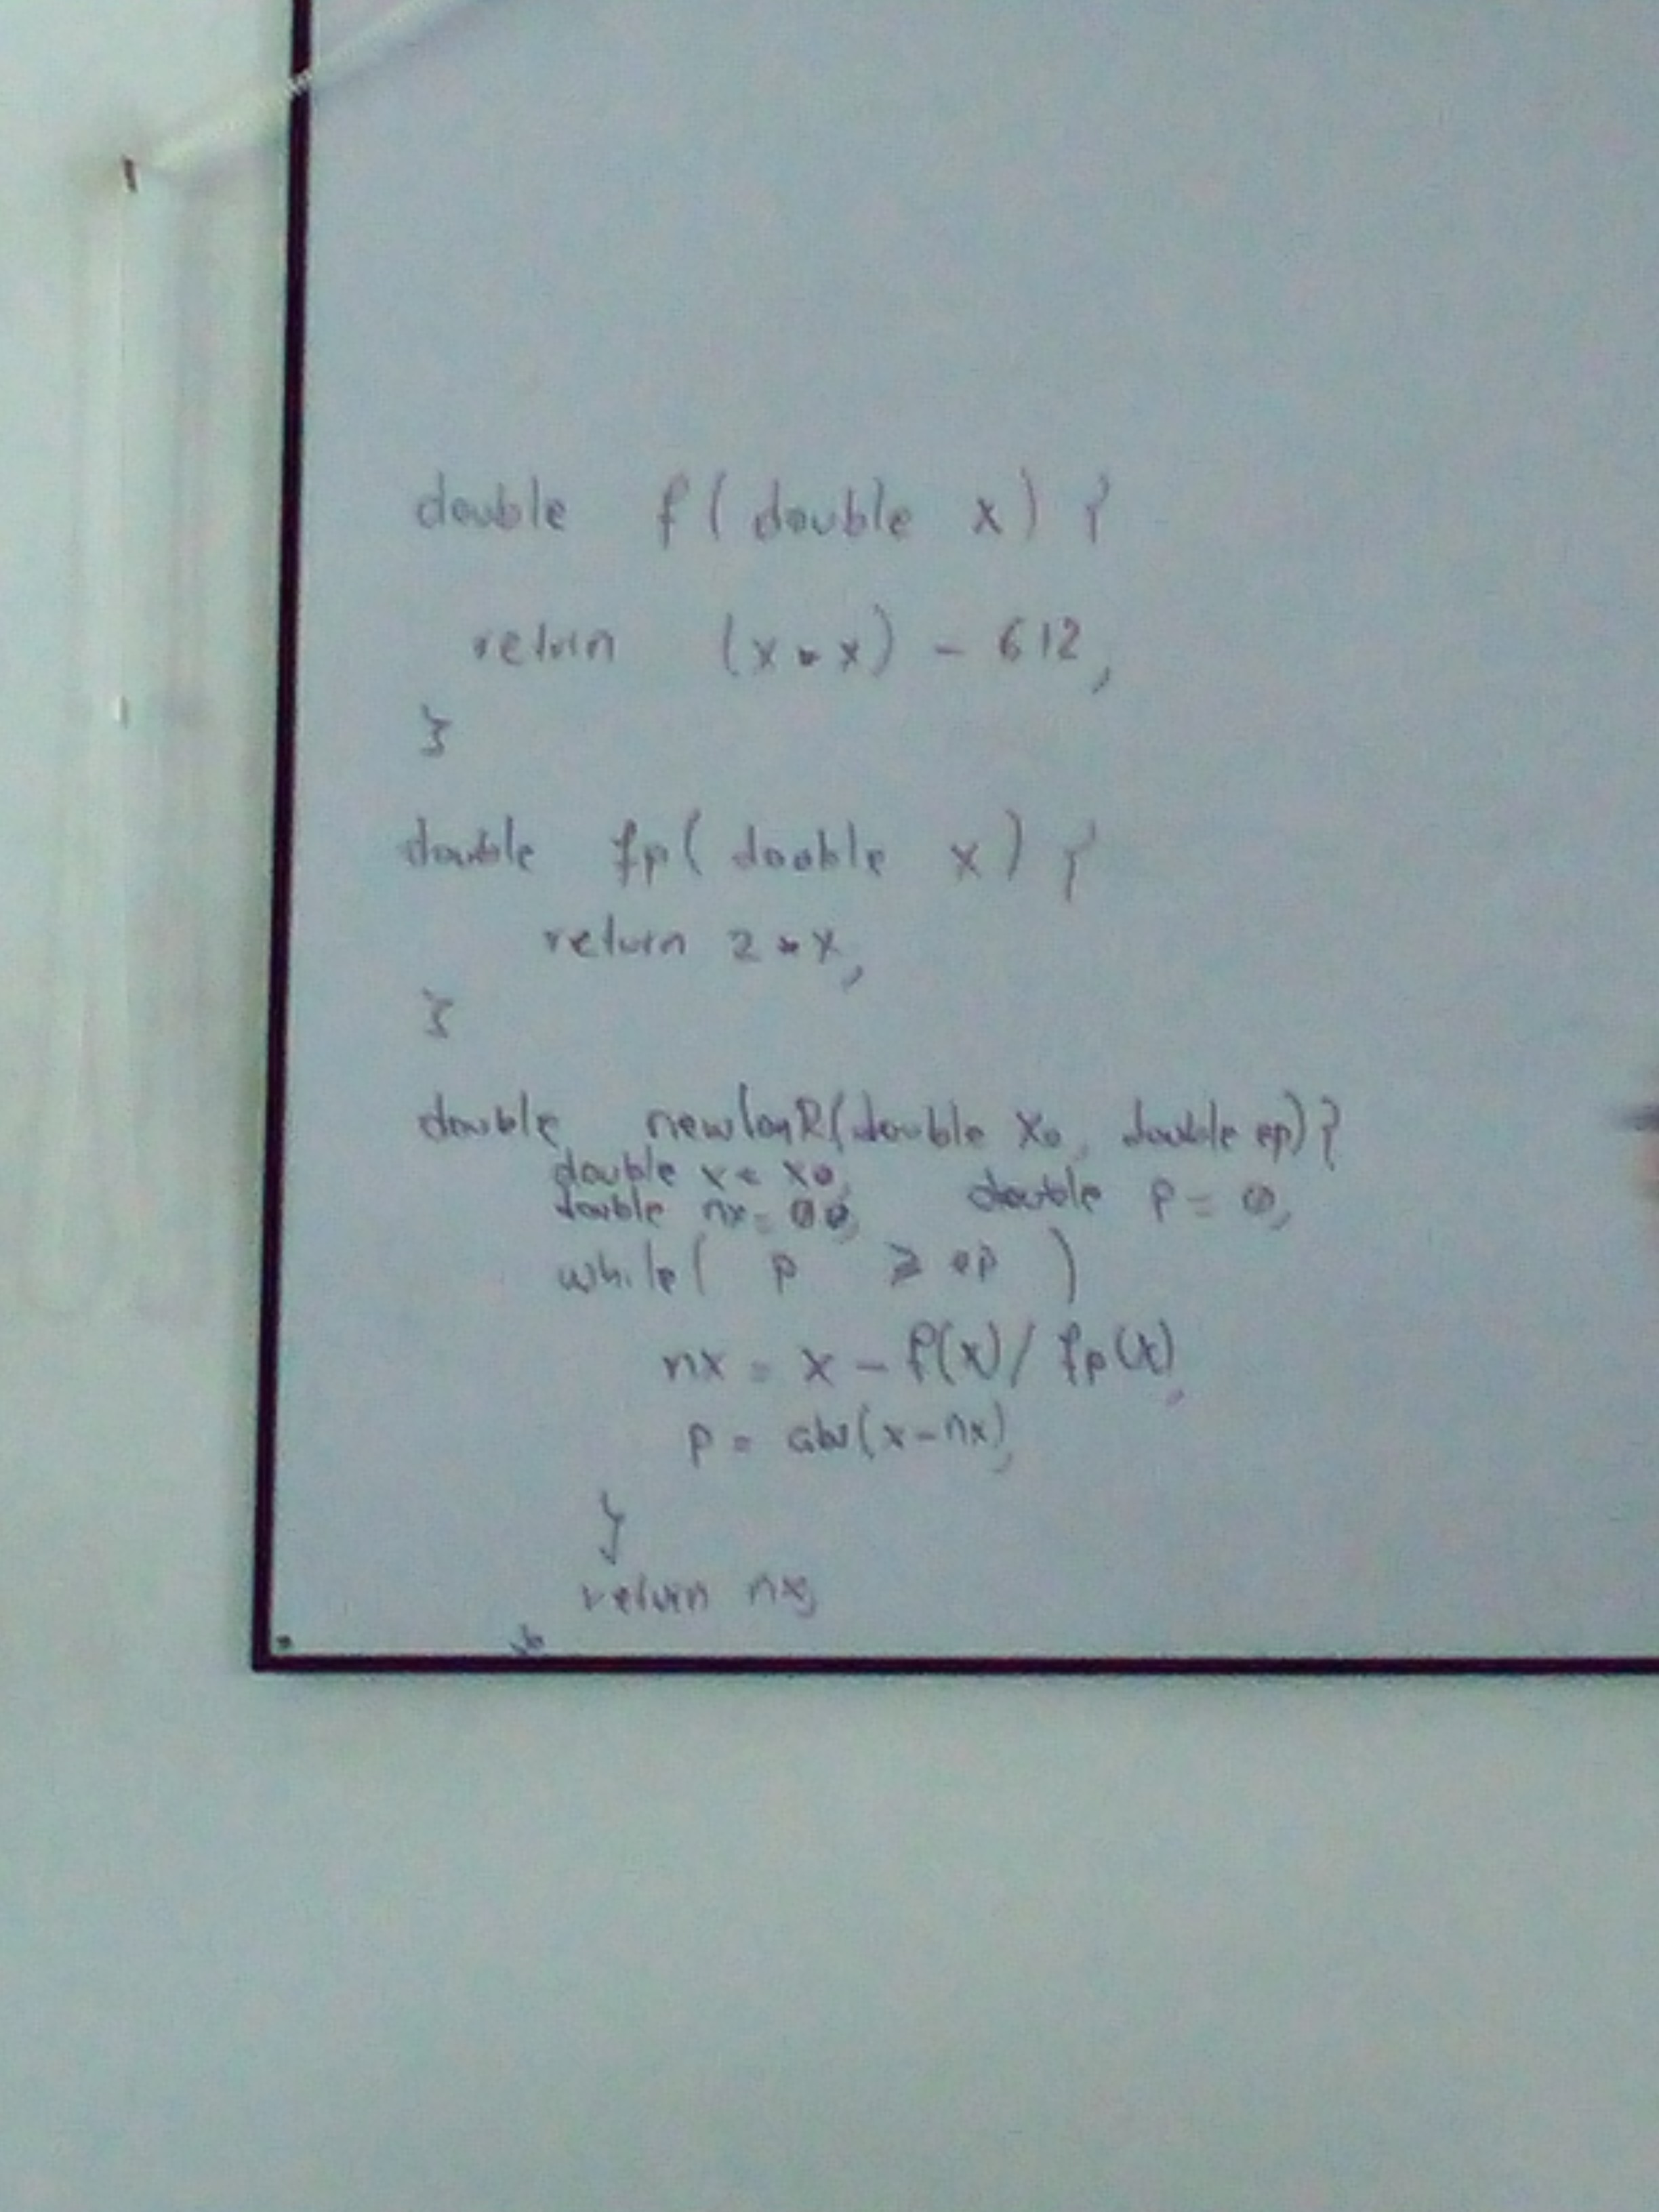 double f(double x) {
return (x*x) - 612;
}
double fp(double x) {
return 2*x;
}
double newtonR(double x0, double ep){
double x = x0; double p = 0;
double nx = 0.0;
while( p >= ep )
nx = x - f(x) / fp(x);
p = abs(x-nx);
}
return nx;